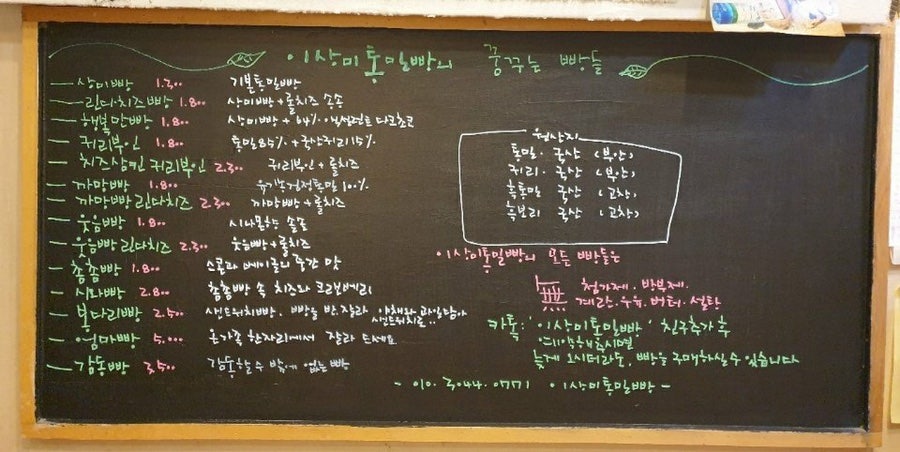 이상미통밀빵의 꿈꾸는 빵들
상미빵 1.300 기본통밀빵
린다치즈빵 1.800 상미빵+롤치즈 송송
행복만빵 1.800 상미빵+64% 다크초코
귀리부인 1.800 통밀85%+국산귀리15%
치즈삼킨 귀리부인 2.300 귀리부인+롤치즈
까망빵 1.800 유기농검정통밀100%
까망빵린다치즈 2.300 까망빵+롤치즈
웃음빵 1.800 시나몬향 솔솔
웃음빵린다치즈 2.300 웃음빵+롤치즈
촘촘빵 1.800 스콘과 베이글의 중간 맛
시와빵 2.800 촘촘빵 속 치즈와 크랜베리
봉다리빵 2.500 샌드위치빵. 빵을 반 잘라 야채와 과일담아
샌드위치로..
엄마빵 5.000 온가족 한자리에서 잘라 드세요
감동빵 3.500 감동할수 밖에 없는 빵
원산지
통밀. 국산 (부안)
귀리. 국산 (부안)
흑통밀 국산 (고창)
흑보리 국산 (고창)
이상미통밀빵의 모든 빵들은
첨가제. 방부제.
계란. 우유. 버터. 설탕
카톡: '이상미통밀빵' 친구추가 후
예약해주시면
늦게 오시더라도, 빵을 구매하실수 있습니다
- 010. 3044. 0771 이상미통밀빵 -